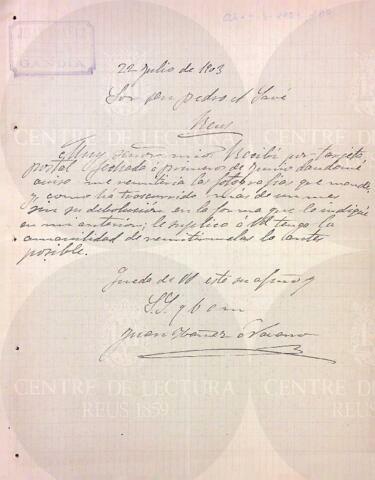 GANDIA
22 Julio de 1903
Sor Don Pedro Cavé
Reus
Muy señor mio: Recibí su tarjeta
postal fechada á primeros de Junio dandome
aviso me remitiria las fotografias que mandé,
y como ha trascurrido mas de un mes
sin su debolucion en la forma que le indiqué
en mi anterior; le suplico á V. tenga la
amavilidad de remitirmelas lo antes
posible.
Queda de V. este su afmo y
S. S. q b s m
Juan Ibañez
CENTRE DE LECTURA
REUS 1859
CENTRE DE LECTURA
REUS 1859